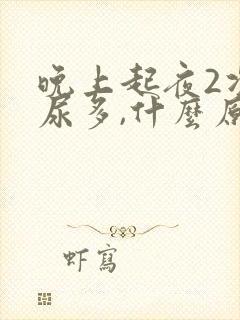 晚上起夜2次
尿多,什麼原
虾寫